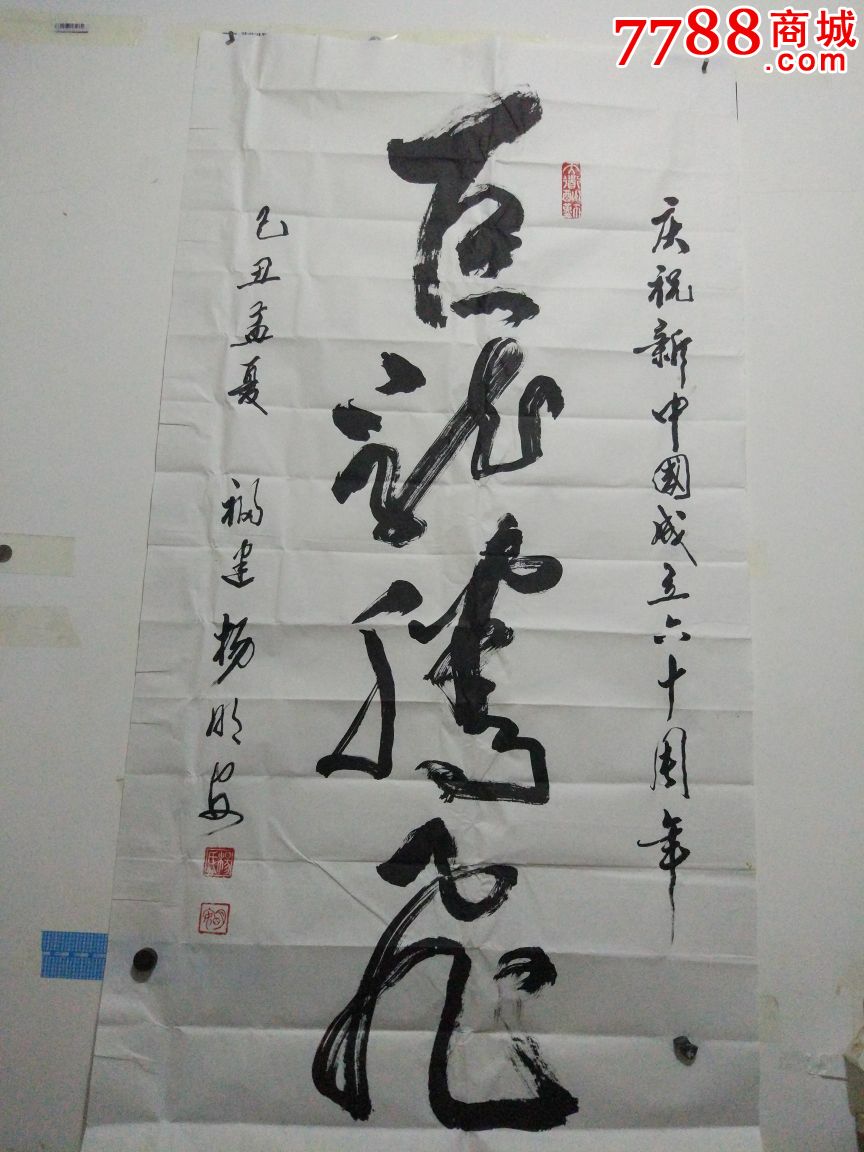 7788商城
.com
庆祝新中國成立六十周年
巨龙腾飛
己丑孟夏 福建杨明安